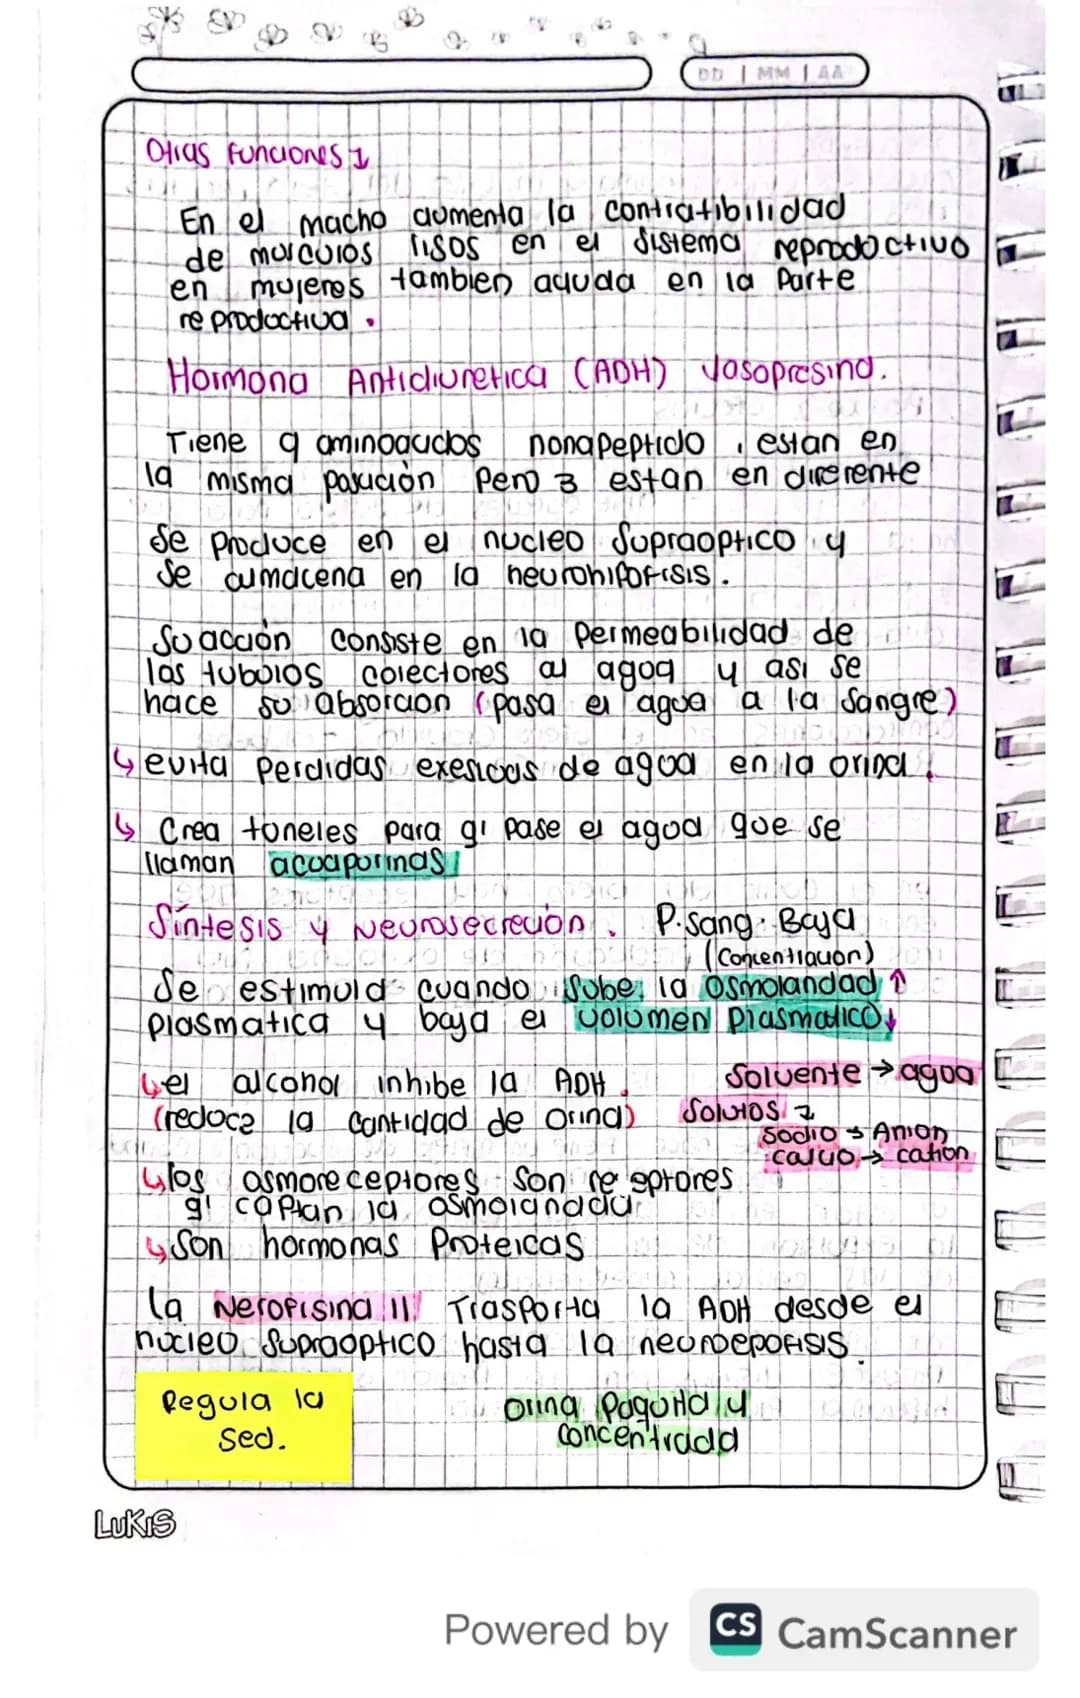 DD | MM | AA
Otras funciones
En el macho aumenta la contratibilidad
de musculos lisos en el sistema reproductivo
en mujeres tambien aduda en la Parte
reproductiva.
Hormona Antidiuretica (ADH) Vasopresina.
Tiene 9 aminoacidos nonapeptido, estan en
la misma posición Pero 3 estan en diferente
Se Produce en el nucleo Supraoptico y
Se almacena en la neurohipofisis.
Su acción consiste en la Permeabilidad de
los tubulos colectores al agua y asi se
hace su absorcion (pasa el agua a la Sangre)
↳ evita Perdidas exesivas de agua en la orina.
↳ Crea tuneles para q' pase el agua que se
llaman acuaporinas
Síntesis y Neurosecreción. P.sang. Baja
(Concentracion)
Se estimula cuando Sube la Osmolandad ↑
Plasmatica y baja el volumen Plasmatico ↓
↳ el alcohol inhibe la ADH. Solvente → agua
(reduce la cantidad de orina) Solutos
Sodio → Anion
calcio → cation
↳ los osmoreceptores Son receptores
q' captan la osmolandad
↳ Son hormonas Proteicas
la Nerofisina II Trasporta la ADH desde el
nucleo Supraoptico hasta la neuroepofisis.
Regula la
Sed.
Orina Poquita y
Concentrada
LUKIS
Powered by CS CamScanner